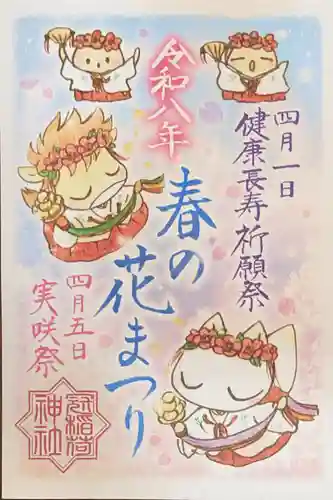 令和八年
四月一日
健康長寿祈願祭
春の花まつり
四月五日
実咲祭
稲荷
神社